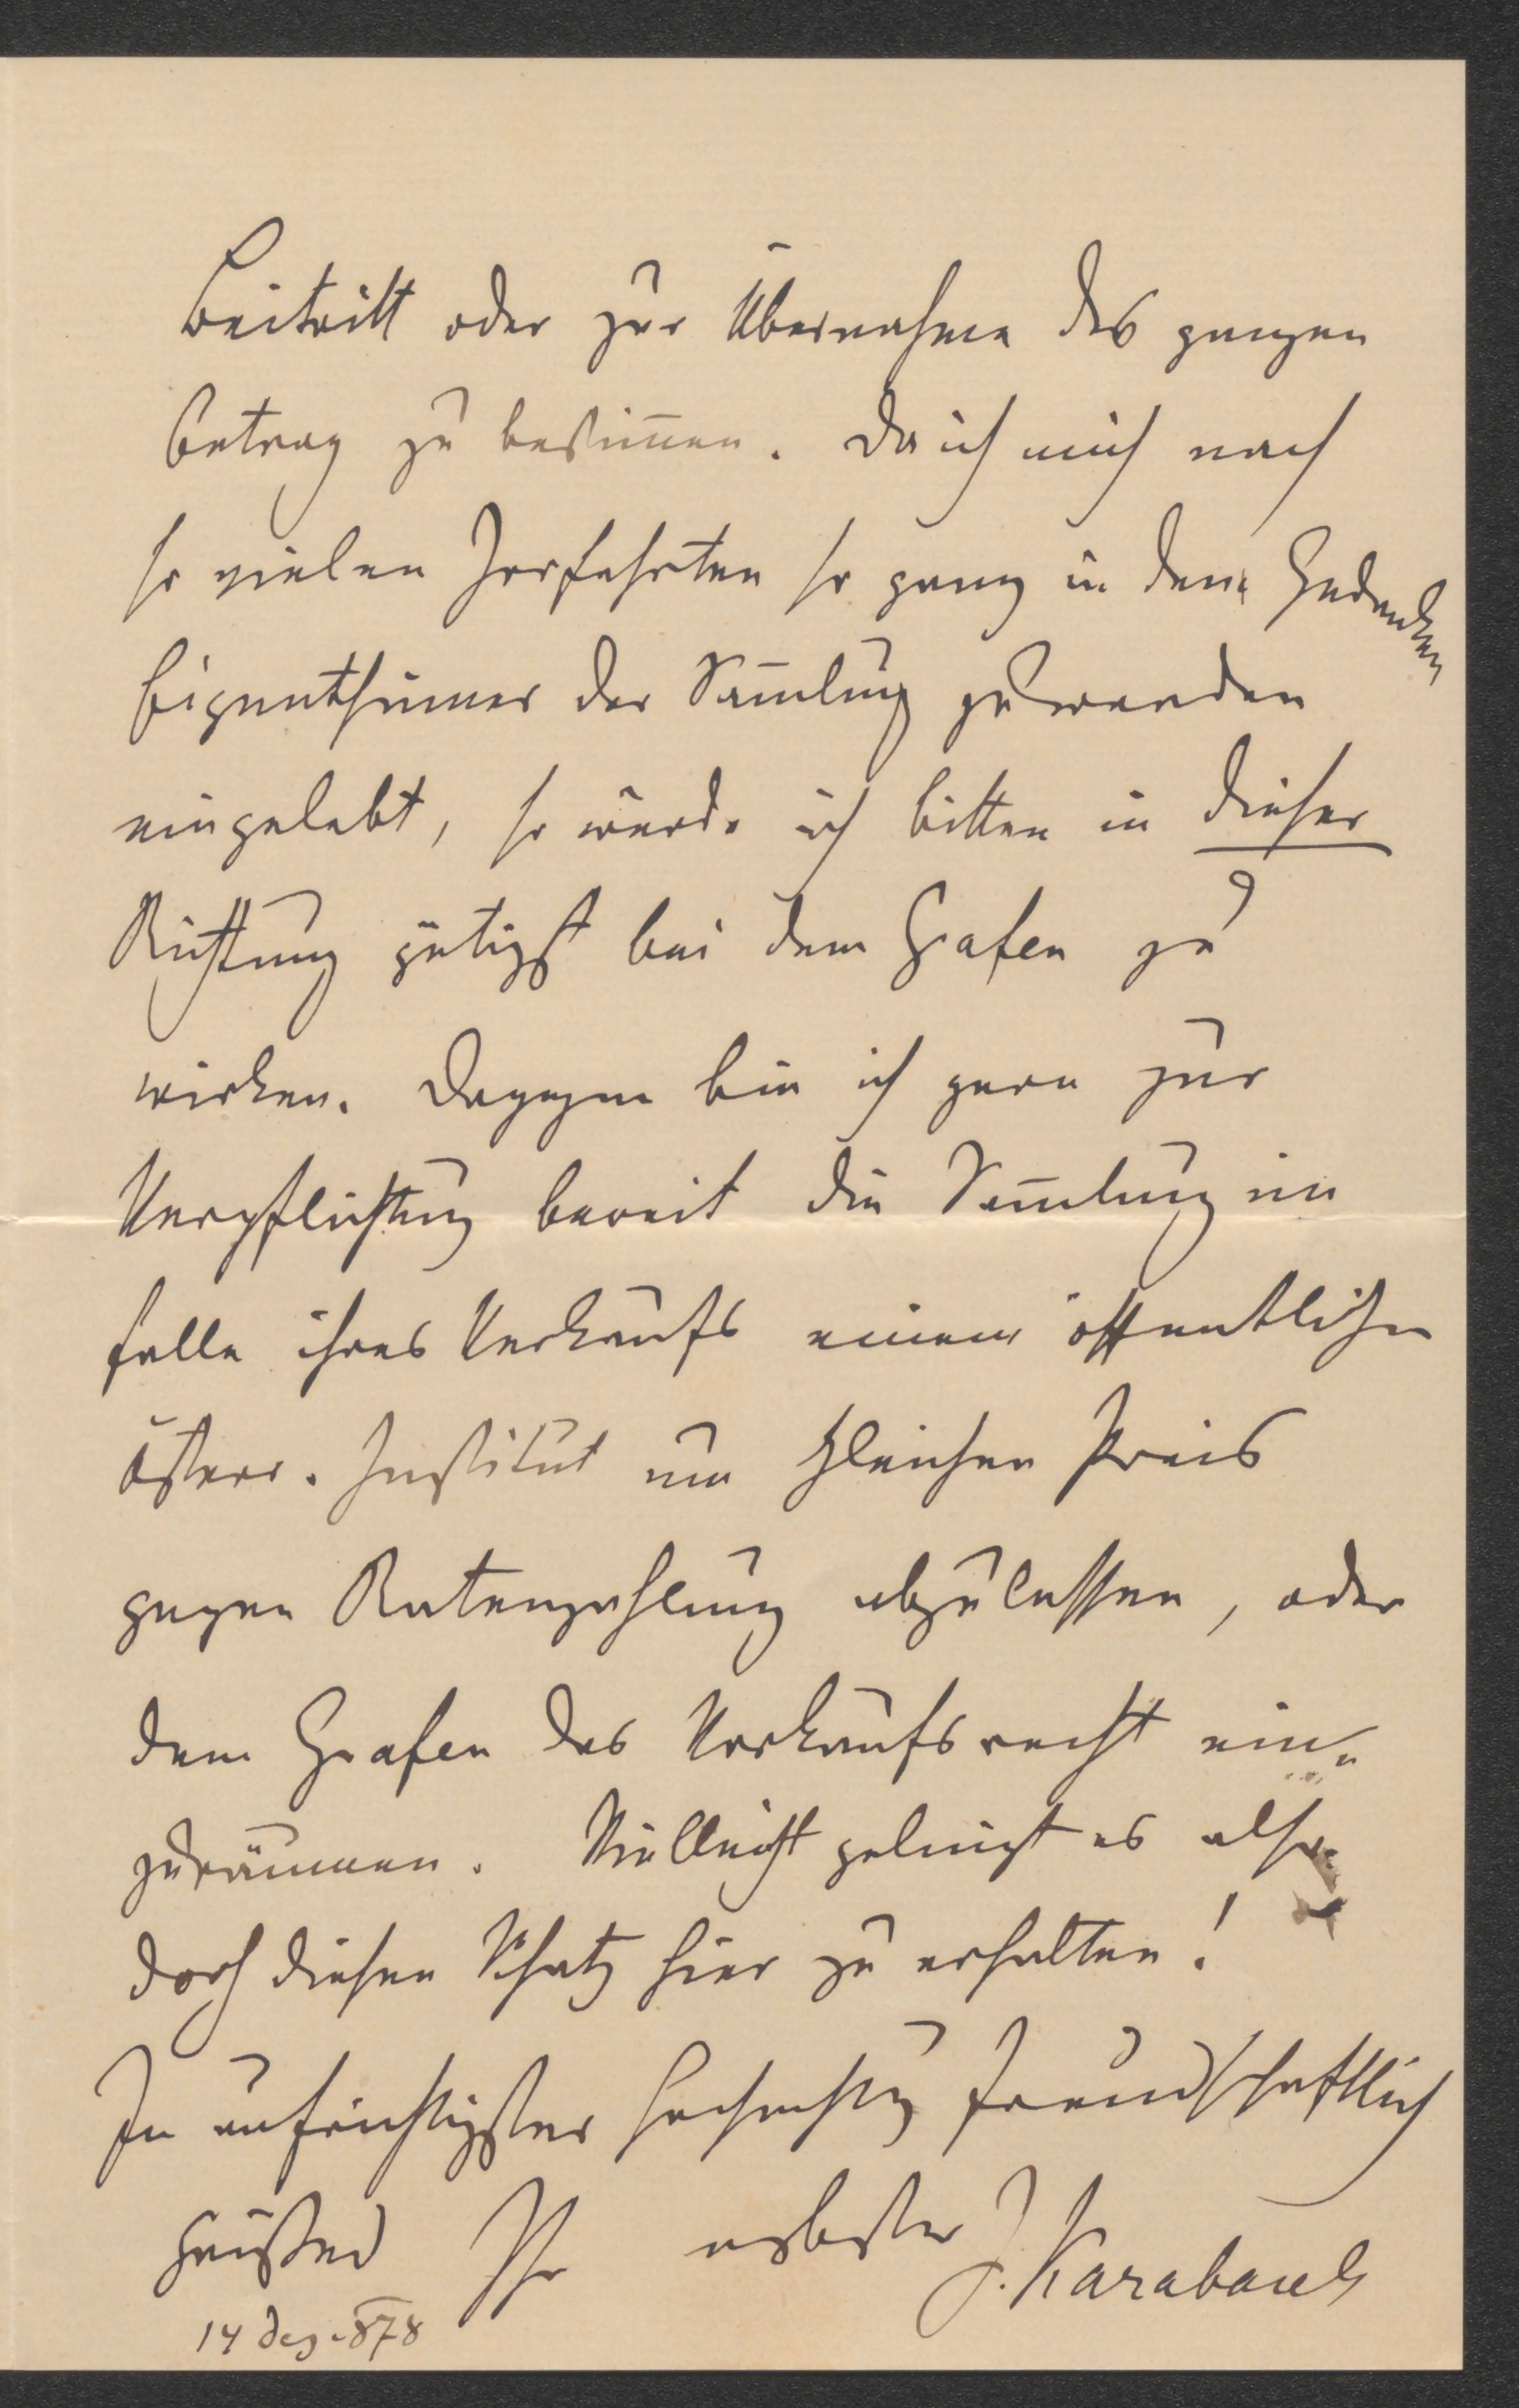 Beitritt oder zur Übernahme des ganzen
Betrag zu bestim̄en. Da ich mich nach
so vielen Irrfahrten so ganz in dem Gedanken
Eigenthümer der Sam̄lung zu werden
eingelebt, so würde ich bitten in dieser
Richtung gütigst bei dem Grafen zu
wirken. Dagegen bin ich gern zur
Verpflichtung bereit die Sam̄lung im
Falle ihres Verkaufs einem öffentlichen
österr. Institut um gleichen Preis
gegen Ratenzahlung abzulassen, oder
dem Grafen das Vorkaufsrecht ein-
zuräumen. Vielleicht gelingt es also
doch diesen Schatz hier zu erhalten!
In aufrichtigster Hochachtg freundschaftlich
grüßend Ihr ergbster J. Karabacek
14 dez. 878